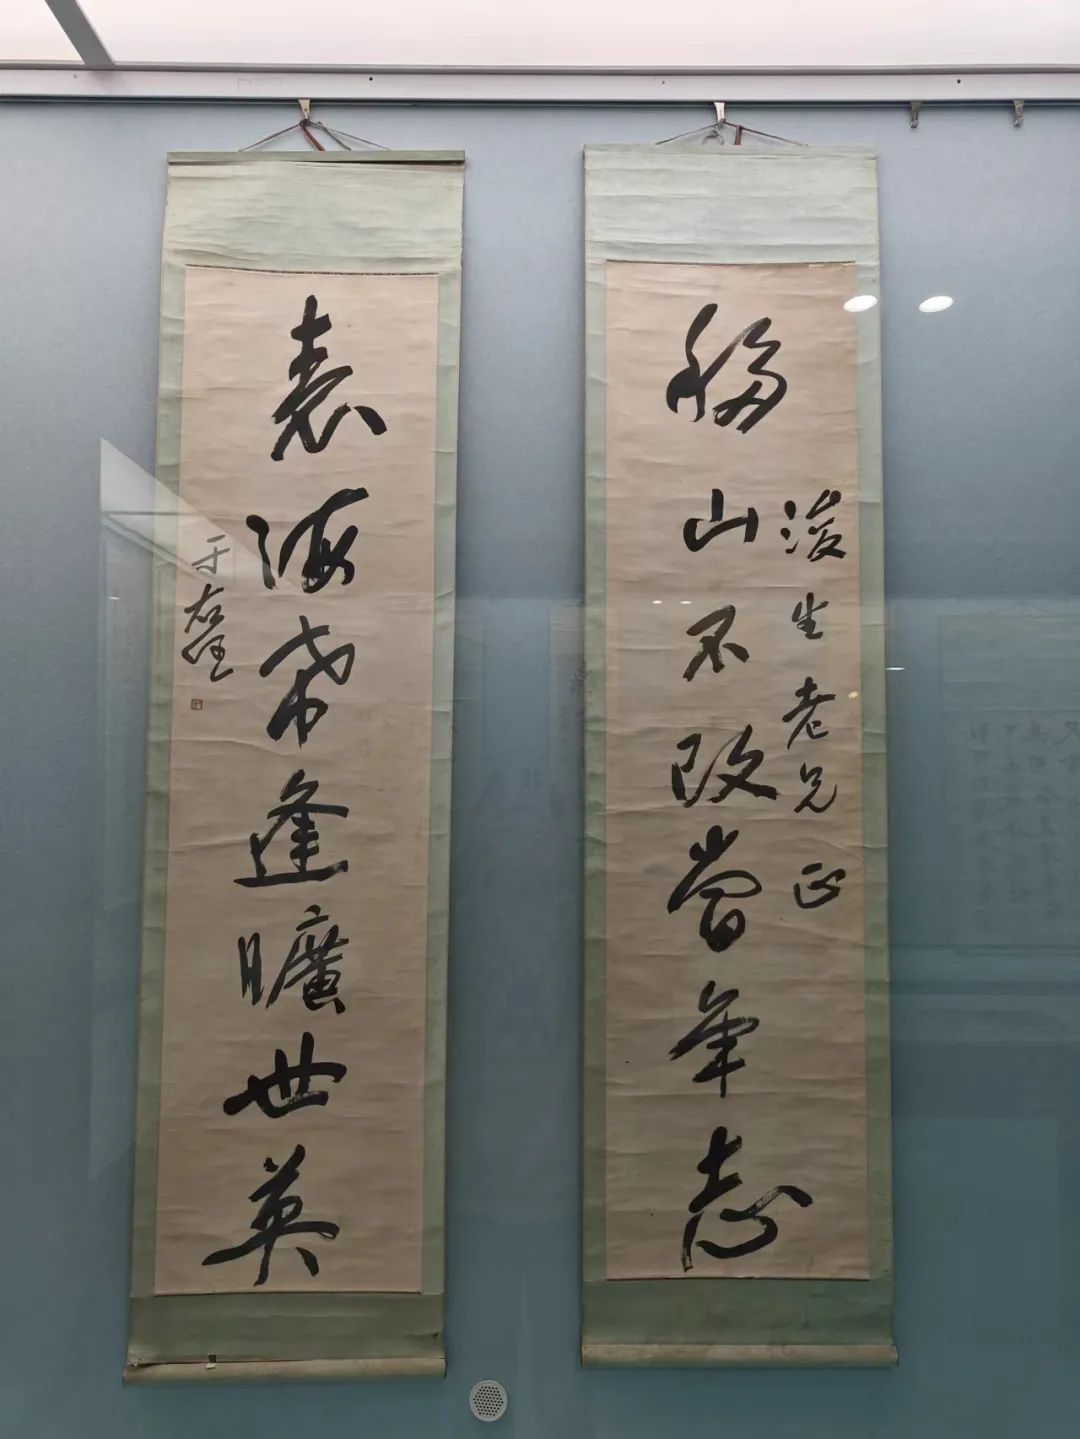 移山不改當年志
浚生老兄正
表海希逢曠世英
于右任